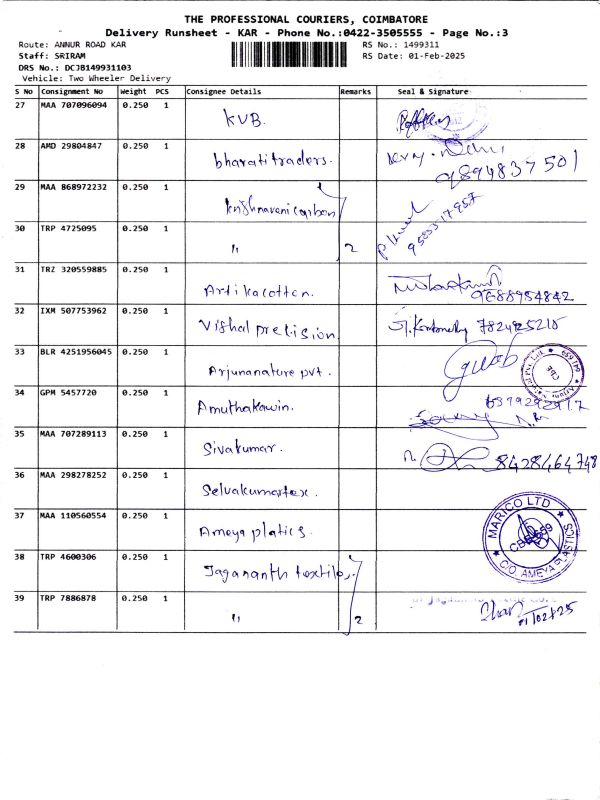 THE PROFESSIONAL COURIERS, COIMBATORE
Delivery Runsheet - KAR - Phone No.:0422-3505555 - Page No.:3
Route: ANNUR ROAD KAR
RS No.: 1499311
Staff: SRIRAM
RS Date: 01-Feb-2025
DRS No.: DCJB149931103
Vehicle: Two Wheeler Delivery
S No Consignment No Weight PCS Consignee Details Remarks Seal & Signature
27 MAA 707096094 0.250 1 KVB.
28 AMD 29804847 0.250 1 bharatitraders. 9894837501
29 MAA 868972232 0.250 1 krishnavenicarbon
30 TRP 4725095 0.250 1 " 2
31 TRZ 320559885 0.250 1 Artikacotton. 9688954842
32 IXM 507753962 0.250 1 Vishal precision
33 BLR 4251956045 0.250 1 Arjunanature pvt.
34 GPM 5457720 0.250 1 Amuthakawin.
35 MAA 707289113 0.250 1 Sivakumar. 8428464748
36 MAA 298278252 0.250 1 Selvakumartex.
37 MAA 110560554 0.250 1 Ameya platics. MARICO LTD C/O. AMEYA PLASTICS
38 TRP 4600306 0.250 1 Jagananth textiles
39 TRP 7886878 0.250 1 " 2